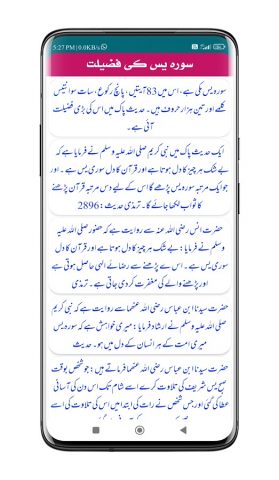 5:27 PM | 0.0KB/s
سورہ یس کی فضیلت
سورہ یس مکی ہے، اس میں 83 آیتیں، پانچ رکوع، سات سو انتیس
کلمے اور تین ہزار حروف ہیں۔ حدیث پاک میں اس کی بڑی فضیلت
آئی ہے۔
ایک حدیث پاک میں نبی کریم صلی اللہ علیہ وسلم نے فرمایا ہے کہ
بے شک ہر چیز کا دل ہوتا ہے اور قرآن کا دل سوری یس ہے۔ اور
جو ایک مرتبہ سورہ یس پڑھے گا اس کے لیے دس مرتبہ قرآن پڑھنے
کا ثواب لکھا جائے گا۔ ترمذی حدیث: 2896
حضرت انس رضی اللہ عنہ سے روایت ہے کہ حضور صلی اللہ علیہ
وسلم نے فرمایا: بے شک ہر چیز کا دل ہوتا ہے اور قرآن کا دل
سوری یس ہے۔ اسے پڑھنے سے رضائے الہی حاصل ہوتی ہے
اور پڑھنے والے کی مغفرت کر دی جاتی ہے۔ ترمذی
حضرت سیدنا ابن عباس رضی اللہ عنھما سے روایت ہے کہ نبی کریم
صلی اللہ علیہ وسلم نے ارشاد فرمایا: میری خواہش ہے کہ سورہ یس
میری امت کے ہر انسان کے دل میں ہو۔ حدیث
حضرت سیدنا ابن عباس رضی اللہ عنھما فرماتے ہیں: جو شخص بوقت
صبح یس شریف کی تلاوت کرے اسے شام تک اس دن کی آسانی
عطا کی گئی اور جس شخص نے رات کی ابتدا میں اس کی تلاوت کی اسے